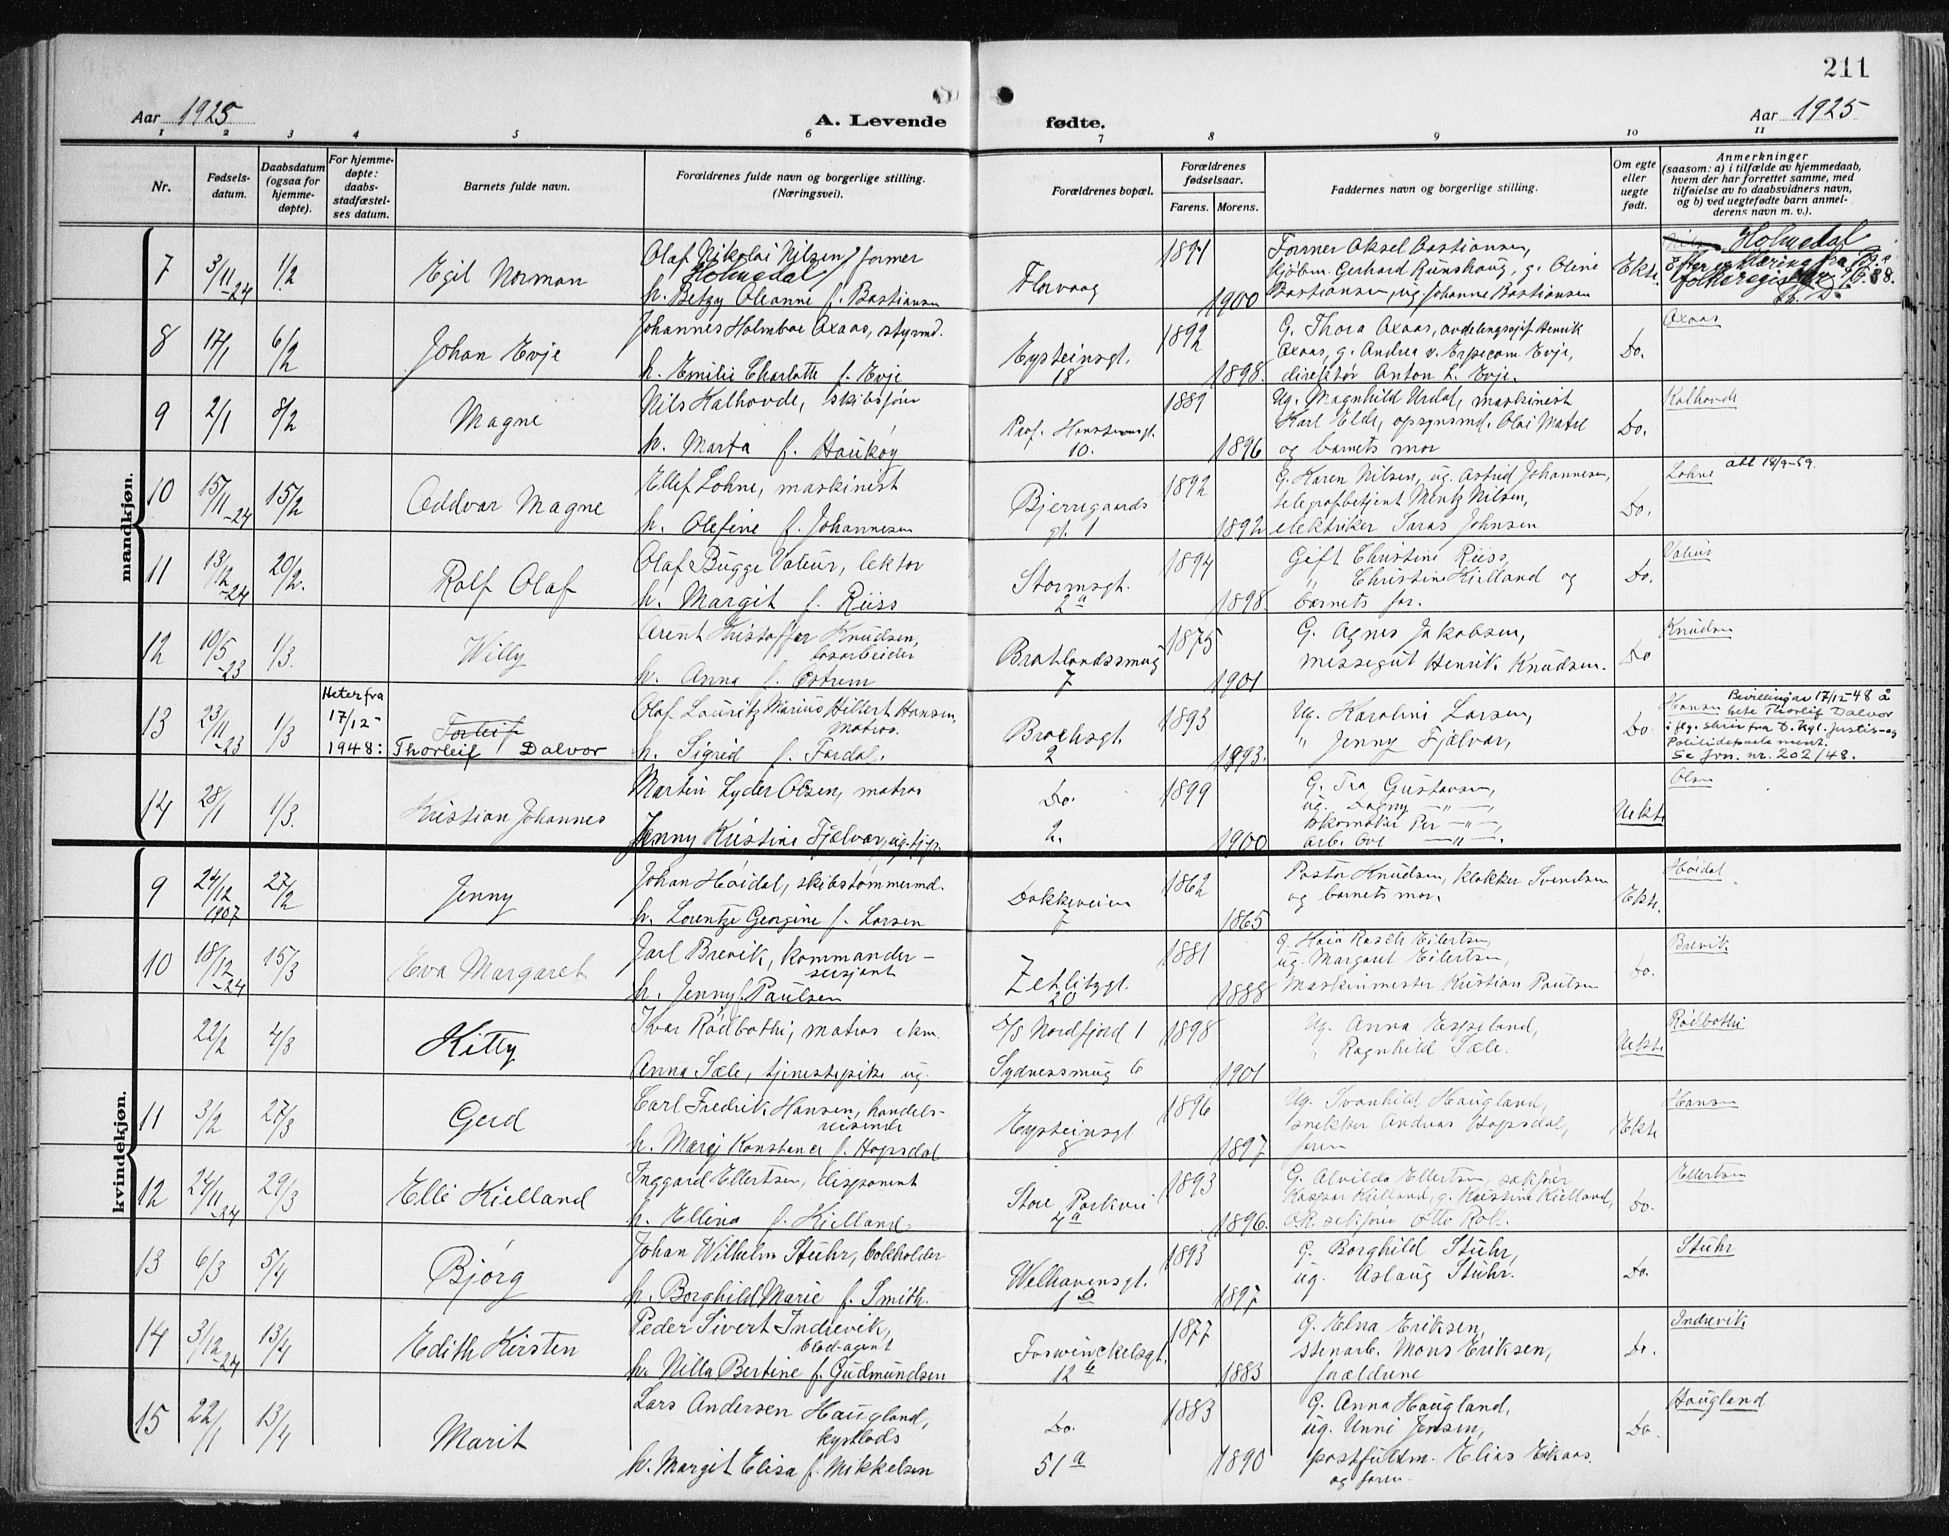 211
Aar 1925
A. Levende fødte.
Aar 1925
1 2 3 4 5 6 7 8 9 10 11
Nr.
Fødsels-
datum.
Daabsdatum
(ogsaa for
hjemme-
døpte).
For hjemme-
døpte:
daabs-
stadfæstel-
ses datum.
Barnets fulde navn.
Forældrenes fulde navn og borgerlige stilling.
(Næringsvei).
Forældrenes bopæl.
Forældrenes
fødselsaar.
Farens. Morens.
Faddernes navn og borgerlige stilling.
Om egte
eller
uegte
født.
Anmerkninger
(saasom: a) i tilfælde av hjemmedaab,
hvem der har forrettet samme, med
tilføielse av to daabsvidners navn,
og b) ved uegtefødte barn anmel-
derens navn m. v.).
mandkjøn.
7 3/11-24 1/2 Egil Norman
Olaf Nikolai Nilsen, former
Holmedal
h. Betzy Oleanne f. Bastiansen
Florvaag 1891 1900
Former Aksel Bastiansen,
kjøbm. Gerhard Runshaug, g. Oline
Bastiansen, ug. Johanne Bastiansen
Ekte. Holmedal
8 17/1 6/2 Johan Evje
Johannes Holmboe Axaas, styrmd.
h. Emilie Charlotte f. Evje
Eysteinsgt. 18 1892 1898.
G. Thora Axaas, avdelingssjef Henrik
Axaas, g. Andrea v. Erpecom Evje,
direktør Anton L. Evje.
Do. Axaas
9 2/1 8/2 Magne
Nils Kalhovde, skibsfører
h. Marta f. Haukøy
Prof. Hansteensgt. 10. 1889 1896
Ug. Magnhild Urdal, maskinist
Karl Elde, opsynsmd. Olai Matre
og barnets mor
Do. Kalhovde
10 15/11-24 15/2 Oddvar Magne
Ellef Lohne, maskinist
h. Olefine f. Johannesen
Bjerregaards gt. 1 1892 1892
G. Karen Nilsen, ug. Astrid Johannesen,
telegrafbetjent Mentz Nilsen,
elektriker Saras Johnsen
Do. Lohne
11 13/12-24 20/2. Rolf Olaf
Olaf Bugge Valeur, lektor
h. Margit f. Riiss
Stormsgt. 2a 1894 1898.
Gift Christine Riiss,
" Christine Kielland og
barnets far.
Do. Valeur
12 10/5-23 1/3. Willy
Arent Kristoffer Knudsen,
løsarbeider
h. Anna f. Østrem
Bratlandssmug 7 1875 1901
G. Agnes Jakobsen,
messegut Henrik Knudsen.
Do Knudsen
13 23/11-23 1/3
Heter fra
17/12-
1948:
Torleif
Thorleif Dalvor
Olaf Lauritz Marius Hilbert Hansen,
matros.
h. Sigrid f. Fardal.
Brochsgt. 2 1893 1893.
Ug. Karoline Larsen,
" Jenny Fjælvar,
Do. Hansen
Bevilling av 17/12-48 å
hete Thorleif Dalvor
iflg. skriv fra D. kgl. Justis- og
Politidepartement.
Se Jvn. nr. 202/48.
14 28/1 1/3. Kristian Johannes
Martin Lyder Olsen, matros
Jenny Kristine Fjælvar, ug. tjp.
Do. 2. 1899 1900
G. Tea Gustavsen,
ug. Dagny —"—,
skomaker Per —"—,
arb. Ove —"—.
Uekte Olsen
kvindekjøn.
9 24/12 1907 27/2 Jenny
Johan Høidal, skibstømmermd.
h. Lorentze Georgine f. Larsen
Dokkeveien 7 1862 1865
Pastor Knudsen, klokker Svendsen
og barnets mor.
Ekte. Høidal
10 18/12-24 15/3 Eva Margaret
Jarl Brevik, kommander-
sersjant
h. Jenny f. Paulsen
Zetlitzgt. 20 1881 1888
ug. Margaret Eilertsen,
Maskinmester Kristian Paulsen
Do. Brevik
22/2 4/3 Kitty
Ivar Rødbothi, matros ekm.
Anna Sæle, tjenestepike ug.
S/S Nordfjord 1
Sydnessmug 6 1898 1901
Ug. Anna Espeland,
" Ragnhild Sæle.
Uekte Rødbothi
11 3/2 27/3 Gerd
Carl Fredrik Hansen, handels-
reisende
h. Marej Konstance f. Hopsdal
Eysteinsgt 8 1896 1897
Ug. Svanhild Haugland,
snekker Andreas Hopsdal,
faren
Ekte Hansen
12 24/11-24 29/3 Elli Kielland
Inggard Ellertsen, disponent
h. Ellina f. Kielland.
Store Parkvei 7a 1893 1896.
G. Alvilda Ellertsen, sakfører
Kasper Kielland, g. Kristine Kielland,
OR. sakfører Otto Roll.
Do. Ellertsen
13 6/3 5/4 Bjørg
Johan Wilhelm Stuhr, bokholder
h. Borghild Marie f. Smith.
Welhavensgt. 1b 1893 1897
G. Borghild Stuhr,
ug. Aslaug Stuhr.
Do. Stuhr
14 3/12-24 13/4 Edith Kirsten
Peder Sivert Indrevik,
blad-agent
h. Nilla Bertine f. Gudmundsen
Forswinckelsgt. 12b 1877 1883
G. Elna Eriksen,
stenarb. Mons Eriksen,
forældrene
Do. Indrevik
15 22/1 13/4 Marit
Lars Andersen Haugland,
kystlods
h. Margit Elisa f. Mikkelsen
Do. 51a 1883 1890
G. Anna Haugland,
ug. Unni Jensen,
postfuldm. Elias Eikaas
og faren.
Do. Haugland